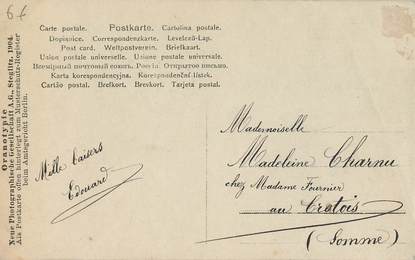 6 f
Carte postale. Postkarte. Cartolina postale.
Dopisnice. Correspondenzkarte. Levelező-Lap.
Post card. Weltpostverein. Briefkaart.
Union postale universelle. Unione postale universale.
Всемірный почтовый союзъ. Россія. Открытое письмо.
Karta korespondencyjna. Korespondenční lístek.
Cartão postal. Brefkort. Brevkort. Tarjeta postal.
Oranotypie
Neue Photographische Gesellschaft A.G., Steglitz, 1904.
Als Postkarte offen hinterlegt zum Musterschutz-Register
beim Amtsgericht Berlin.
Mille baisers
Edouard
Mademoiselle
Madeleine Charnu
chez Madame Fournier
au Crotois
(Somme)